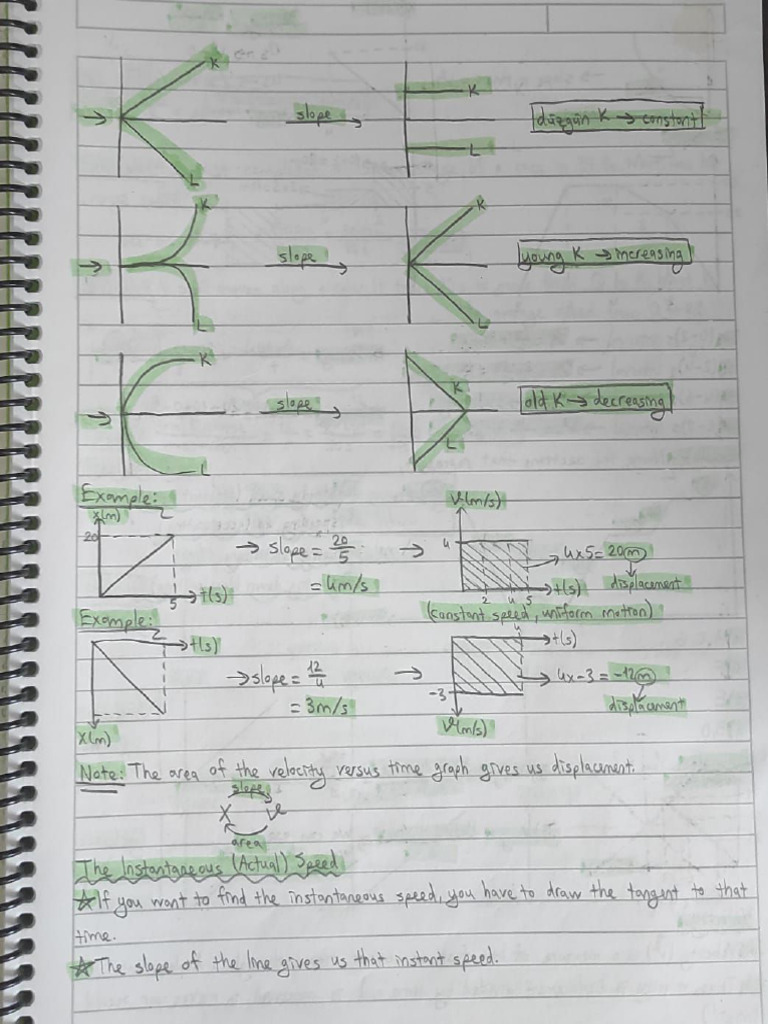 K
slope
K
düzgün K → constant
L
L
K
slope
K
young K → increasing
L
L
K
slope
K
old K → decreasing
L
L
Example:
x(m)
20
5
t(s)
→ slope = 20/5
= 4m/s
→
V(m/s)
4
2 4 5
t(s)
→ 4x5 = 20m
displacement
(constant speed, uniform motion)
Example:
t(s)
X(m)
→ slope = 12/4
= 3m/s
→
4
t(s)
-3
V(m/s)
→ 4x-3 = -12m
displacement
Note: The area of the velocity versus time graph gives us displacement.
slope
X V
area
The Instantaneous (Actual) Speed
☆ If you want to find the instantaneous speed, you have to draw the tangent to that
time.
☆ The slope of the line gives us that instant speed.